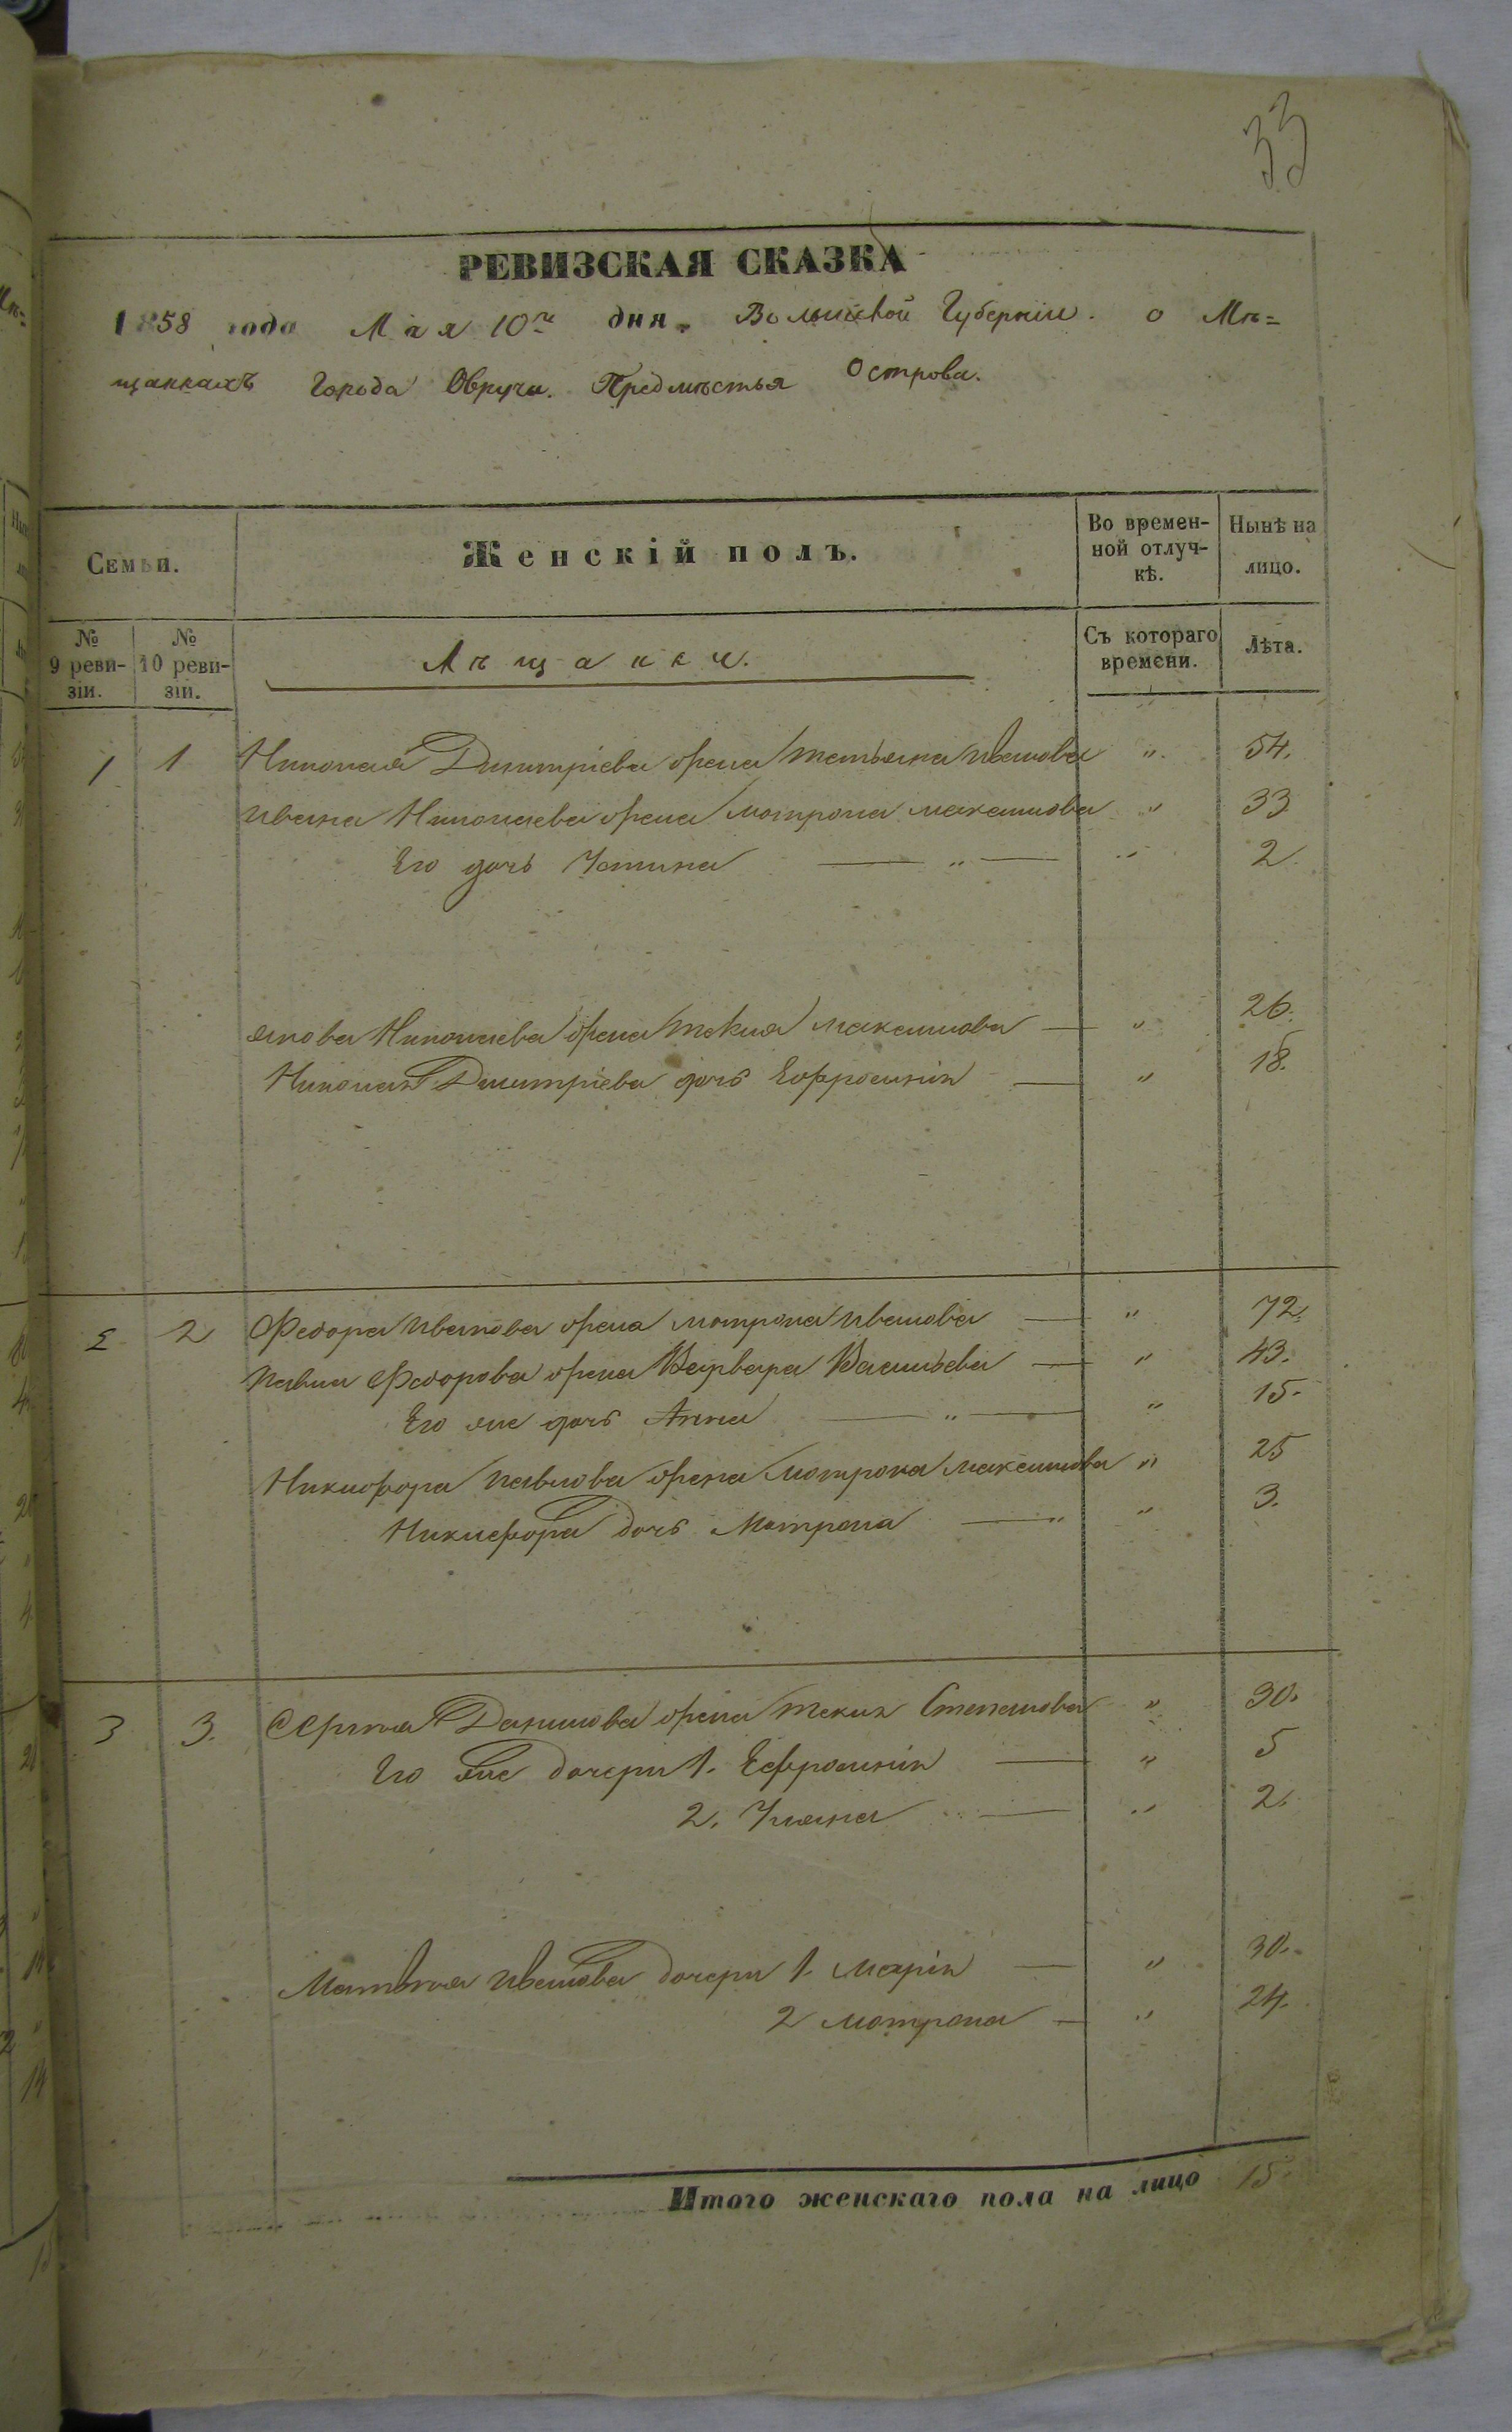 33
РЕВИЗСКАЯ СКАЗКА
1858 года Мая 10го дня. Волынской Губерніи. о Мѣ=
щанкахъ Города Овруча. Предмѣстья Острова.
Семьи.
Женскій полъ.
Во времен-
ной отлуч-
кѣ.
Нынѣ на
лицо.
№
9 реви-
зіи.
№
10 реви-
зіи.
Мѣщанки.
Съ котораго
времени.
Лѣта.
1 1 Николая Димитріева жена Татьяна Иванова " 54.
Ивана Николаева жена Мотрона Максимова " 33
Его дочь Устина — " — " 2.
Якова Николаева жена Текля Максимова — " 26.
Николая Димитріева дочь Ефросинія — " 18.
2 2 Федора Иванова жена Мотрона Иванова — " 72.
Павла Федорова жена Варвара Васильева — " 43.
Его же дочь Анна — " — " 15.
Никифора Павлова жена Мотрона Максимова " 25
Никифора дочь Мотрона — " " 3.
3 3. Сергѣя Данилова жена Текля Степанова " 30.
Его же дочери 1. Ефросинія — " 5
2. Уляна — " 2.
Матвѣя Иванова дочери 1. Марія — " 30.
2 Мотрона — " 24.
Итого женскаго пола на лицо 15.